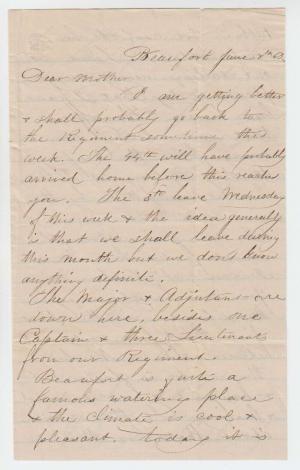 Beaufort June 8th 63
Dear Mother
I am getting better
& shall probably go back to
the Regiment sometime this
week. The 44th will have probably
arrived home before this reaches
you. The 3d leave Wednesday
of this week & the idea generally
is that we shall leave during
this month but we don't know
anything definite.
The Major & Adjutant are
down here, besides one
Captain & three Lieutenants
from our Regiment.
Beaufort is quite a
famous watering place
& the climate is cool &
pleasant. today it is